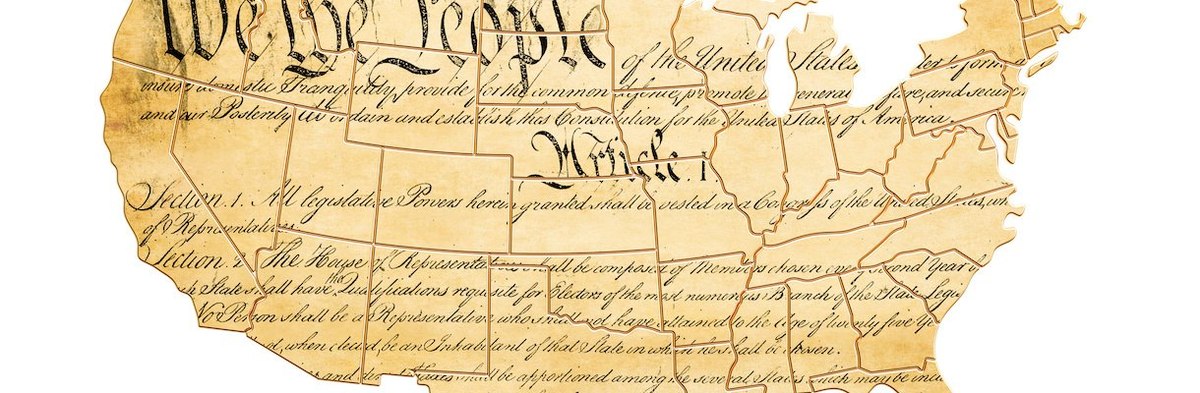 We the People
of the United States
insure domestic Tranquility, provide for the common defence, promote general and secure
and our Posterity do ordain and establish this Constitution for the United States of America.
Article. I.
Section. 1. All legislative Powers herein granted shall be vested in a Congress of the United States,
of Representatives.
Section. 2. The House of Representatives shall be composed of Members chosen every second Year
State shall have the Qualifications requisite for Electors of the most numerous Branch of the State
No Person shall be a Representative who shall not have attained to the Age of twenty five
when elected, be an Inhabitant of that State in which he shall be chosen.
and shall be apportioned among the several States which may be